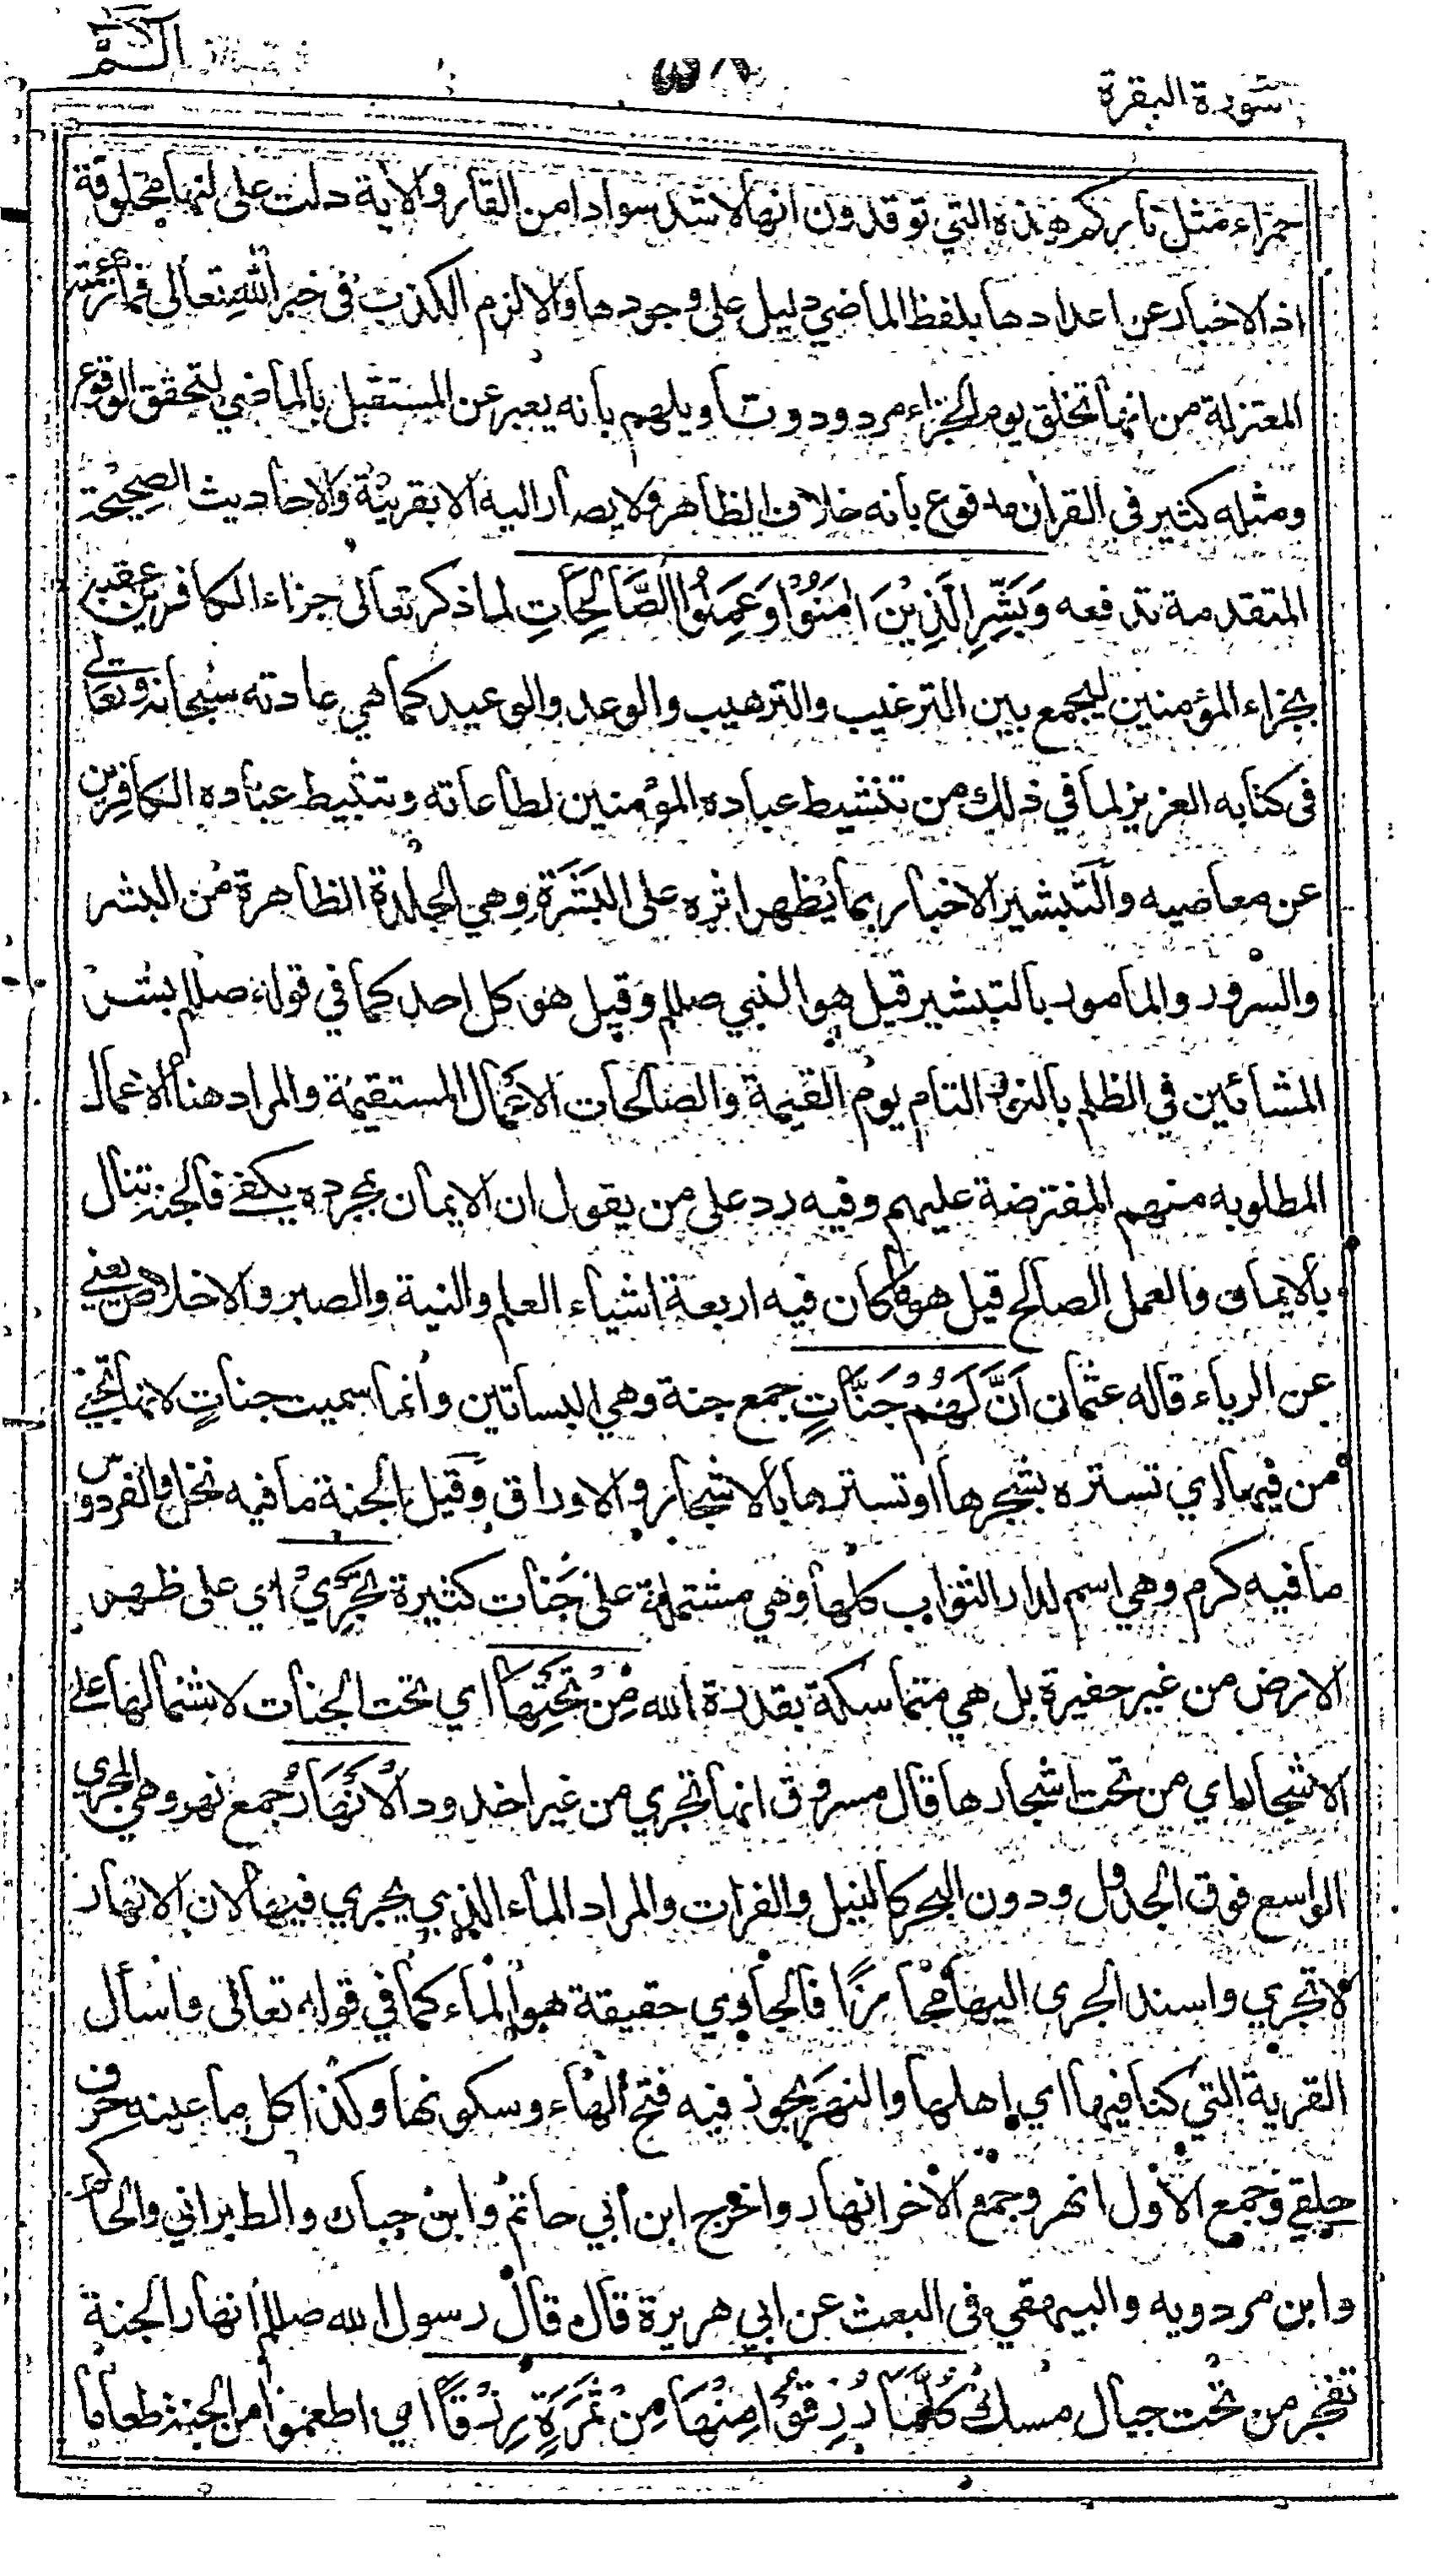 سورة البقرة
الٓمّٓ
حمراء مثل ناركم هذه التي توقدون انها لاشد سوادا من القار والاية دلت على انها مخلوقة
اذ الاخبار عن اعدادها بلفظ الماضي دليل على وجودها والا لزم الكذب في خبر الله تعالى فما زعمته
المعتزلة من انها تخلق يوم الجزاء مردود وتاويلهم بانه يعبر عن المستقبل بالماضي لتحقق الوقوع
ومثله كثير في القران مدفوع بانه خلاف الظاهر ولا يصار اليه الا بقرينة والاحاديث الصحيحة
المتقدمة تدفعه وَبَشِّرِ الَّذِيْنَ اٰمَنُوْا وَعَمِلُوا الصَّالِحَاتِ لما ذكر تعالى جزاء الكافرين عقبه
بجزاء المؤمنين ليجمع بين الترغيب والترهيب والوعد والوعيد كما هي عادته سبحانه وتعالى
في كتابه العزيز لما في ذلك من تنشيط عباده المؤمنين لطاعاته وتثبيط عباده الكافرين
عن معاصيه والتبشير الاخبار بما يظهر اثره على البشرة وهي الجلدة الظاهرة من البشر
والسرور والمامور بالتبشير قيل هو النبي صللم وقيل هو كل احد كما في قوله صللم بشر
المشائين في الظلم بالنور التام يوم القيمة والصالحات الاعمال المستقيمة والمراد هنا الاعمال
المطلوبه منهم المفترضة عليهم وفيه رد على من يقول ان الايمان بمجرده يكفي فالجنة تنال
بالايمان والعمل الصالح قيل هو ما كان فيه اربعة اشياء العلم والنية والصبر والاخلاص يعني
عن الرياء قاله عثمان اَنَّ لَهُمْ جَنَّاتٍ جمع جنة وهي البساتين وانما سميت جنات لانها تجن
من فيها اي تستره بشجرها او تسترها بالاشجار والاوراق وقيل الجنة ما فيه نخل والفردوس
ما فيه كرم وهي اسم لدار الثواب كلها وهي مشتملة على جنات كثيرة تَجْرِيْ اي على ظهر
الارض من غير حفيرة بل هي متماسكة بقدرة الله مِنْ تَحْتِهَا اي تحت الجنات لاشتمالها على
الاشجار اي من تحت اشجارها قال مسروق انها تجري من غير اخدود الْاَنْهَارُ جمع نهر وهي المجرى
الواسع فوق الجدول ودون البحر كالنيل والفرات والمراد الماء الذي يجري فيها لان الانهار
لا تجري واسند الجرى اليها مجازا فالجاري حقيقة هو الماء كما في قوله تعالى واسأل
القرية التي كنا فيها اي اهلها والنهر يجوز فيه فتح الهاء وسكونها وكذا كل ما عينه حرف
حلقي وجمع الاول انهر وجمع الاخر انهار واخرج ابن ابي حاتم وابن حبان والطبراني والحاكم
وابن مردويه والبيهقي في البعث عن ابي هريرة قال قال رسول الله صللم انهار الجنة
تفجر من تحت جبال مسك كُلَّمَا رُزِقُوْا مِنْهَا مِنْ ثَمَرَةٍ رِزْقًا اي اطعموا من الجنة طعاما